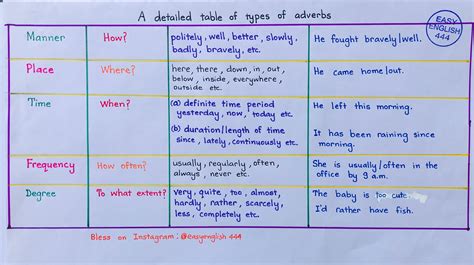 A detailed table of types of adverbs
EASY
ENGLISH
444
Manner
How?
politely, well, better, slowly,
badly, bravely, etc.
He fought bravely/well.
Place
Where?
here, there, down, in, out,
below, inside, everywhere,
outside etc.
He came home/out.
Time
When?
(a) definite time period
yesterday, now, today etc.
(b) duration/length of time
since, lately, continuously etc.
He left this morning.
It has been raining since
morning.
Frequency
How often?
usually, regularly, often,
always, never etc.
She is usually/often in the
office by 9 a.m.
Degree
To what extent?
very, quite, too, almost,
hardly, rather, scarcely,
less, completely etc.
The baby is too cute
I'd rather have fish.
Bless on Instagram: @easyenglish 444